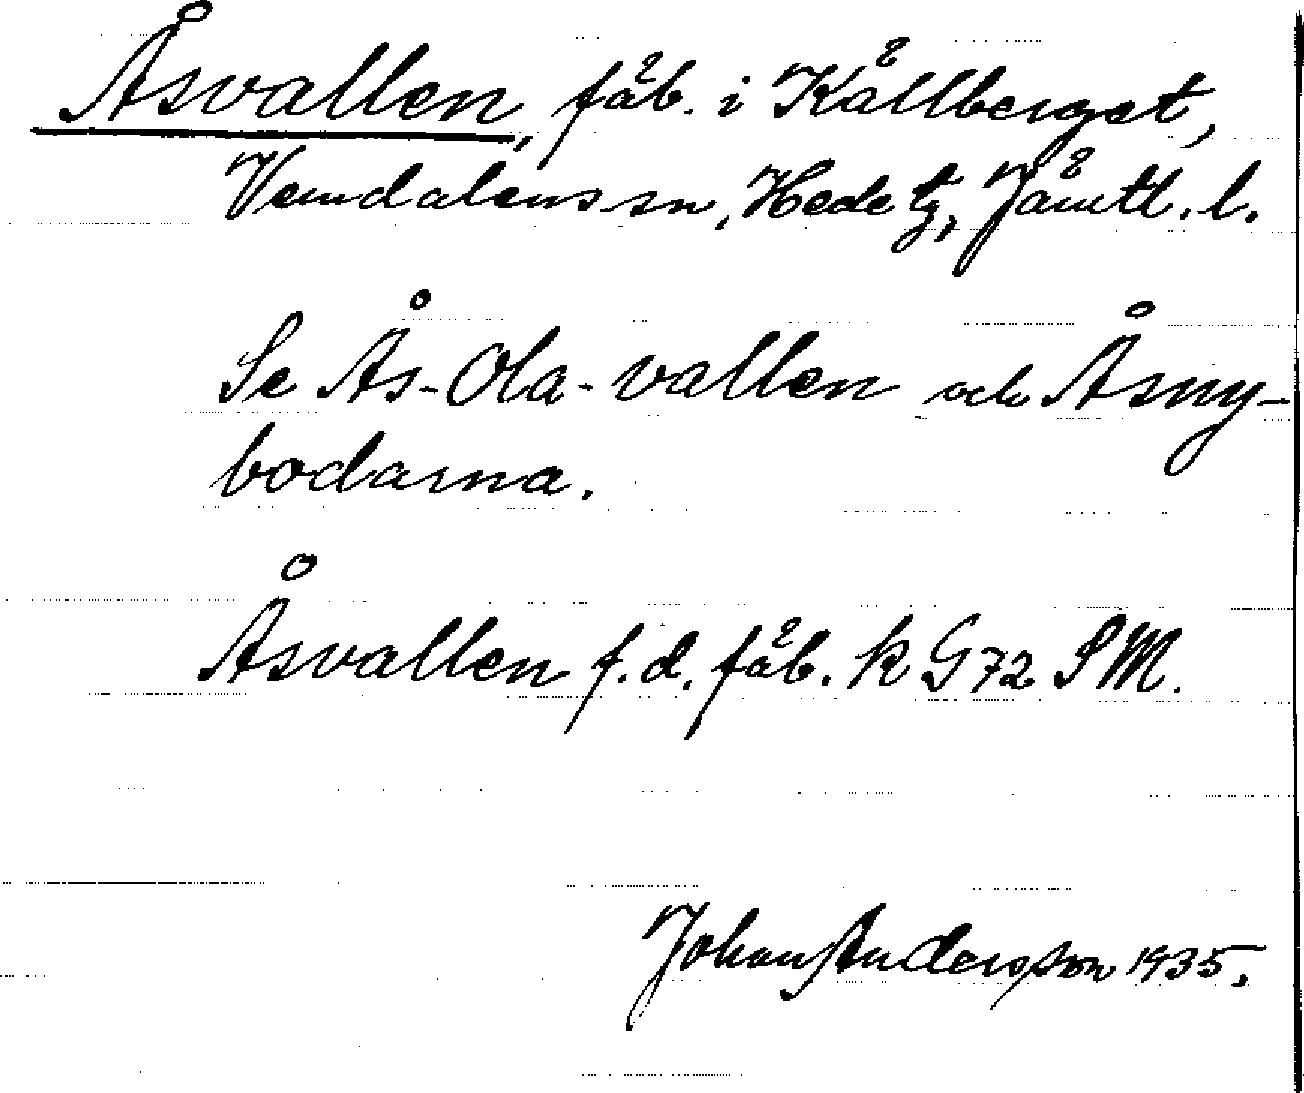 Åsvallen, fäb. i Kålberget,
Vemdalens sn, Hede tg, Jämtl. l.
Se Ås-Ola-vallen och Åsny-
bodarna.
Åsvallen f.d. fäb. k G72 SM.
Johan Andersson 1935.